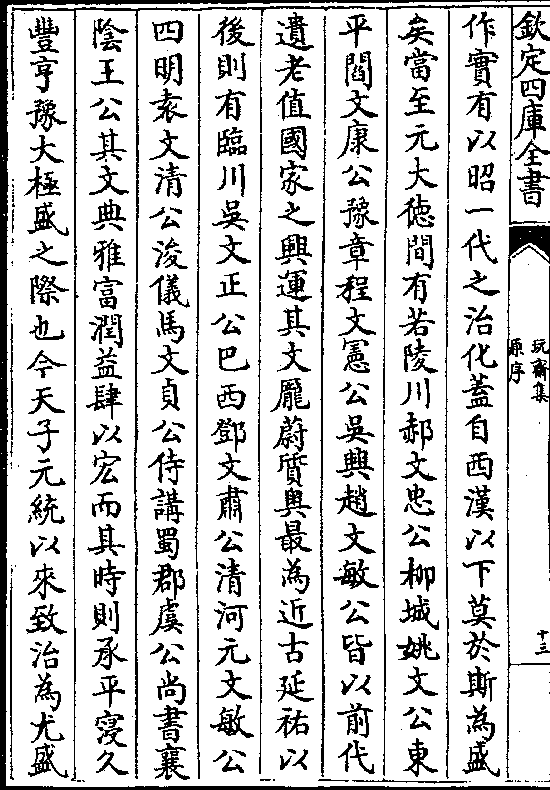 欽定四庫全書
玩齋集
原序
十三
作實有以昭一代之治化蓋自西漢以下莫於斯為盛
矣當至元大徳間有若陵川郝文忠公柳城姚文公東
平閻文康公豫章程文憲公吳興趙文敏公皆以前代
遺老值國家之興運其文龎蔚質輿最為近古延祐以
後則有臨川吳文正公巴西鄧文肅公清河元文敏公
四明袁文清公浚儀馬文貞公侍講蜀郡虞公尚書襄
陰王公其文典雅富潤益肆以宏而其時則承平寖久
豐亨豫大極盛之際也今天子元統以來致治為尤盛